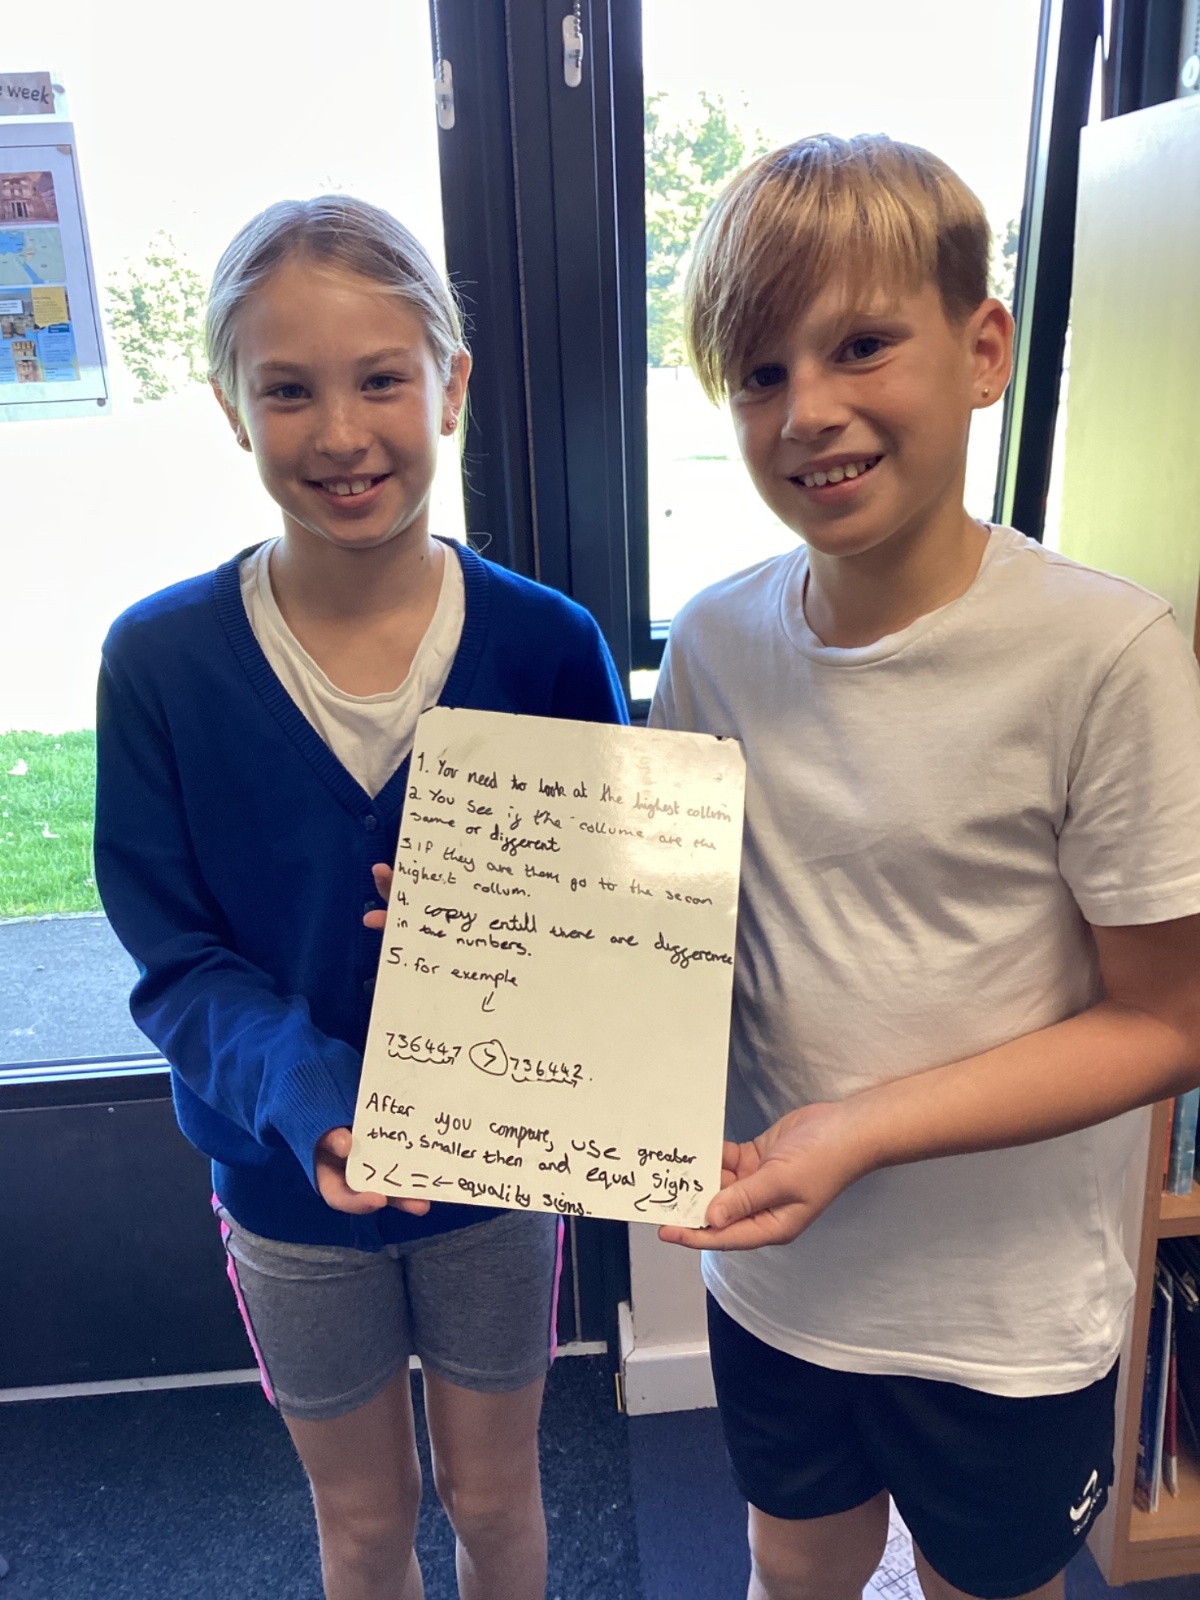 e week
1. You need to look at the highest collum
2. You see if the collume are the
same or different
3. if they are them go to the secon
highest collum.
4. copy entill there are difference
in the numbers.
5. for exemple
736447 > 736442.
After you compare, use greater
then, smaller then and equal signs
> < = ← equality signs.